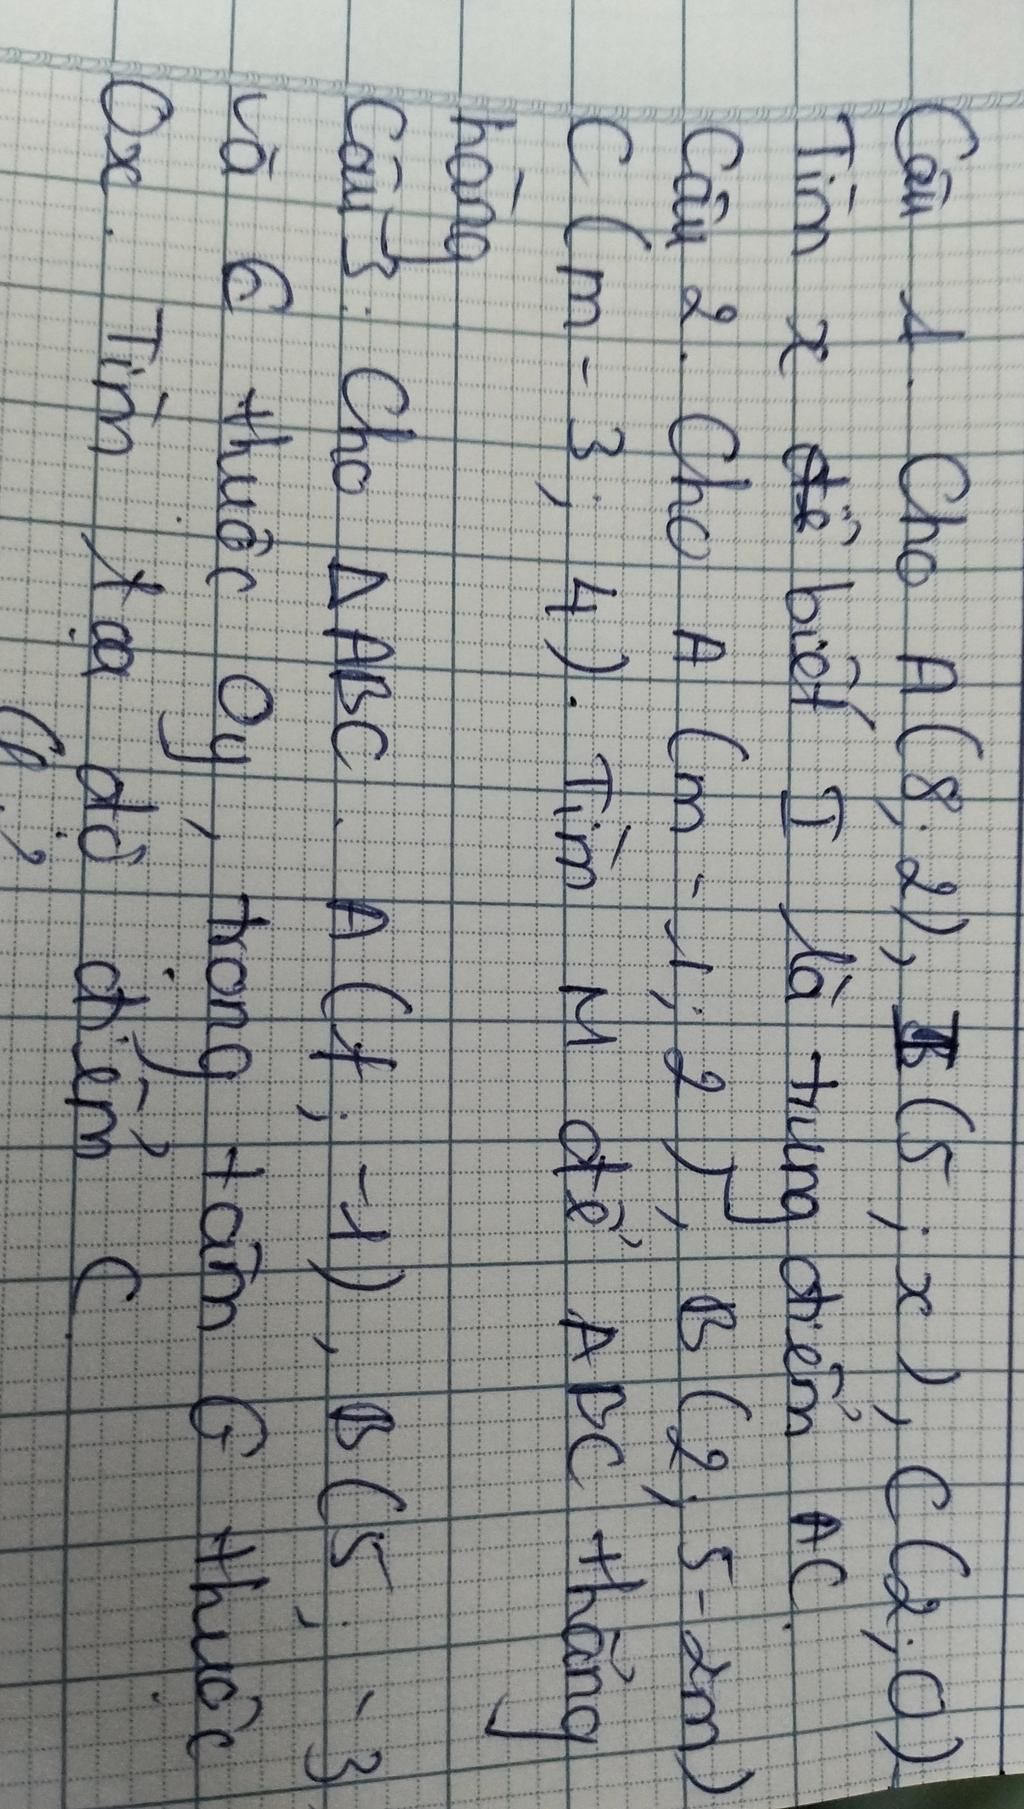 Câu 1. Cho A(8;2), I(5;x), C(2;0)
Tìm x để biết I là trung điểm AC.
Câu 2. Cho A(m-1;2), B(2;5-2m)
C(m-3;4). Tìm M để ABC thẳng
hàng
Câu 3. Cho ΔABC. A(1;-1), B(5;-3
và C thuộc Oy, trọng tâm G thuộc
Ox. Tìm tọa độ điểm C.